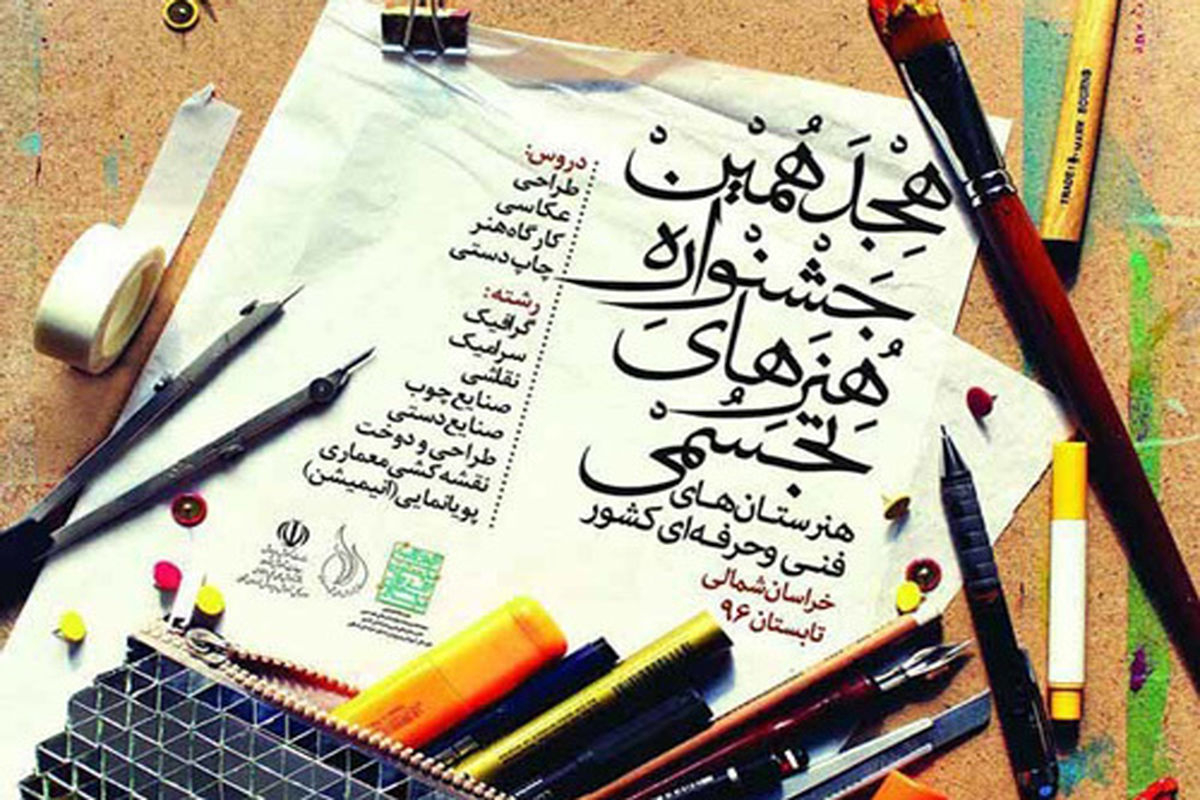 هجدهمین
جشنواره
هنرهای
تجسمی
هنرستان‌های
فنی و حرفه‌ای کشور
خراسان شمالی
تابستان ۹۶
دروس:
طراحی
عکاسی
کارگاه هنر
چاپ دستی
رشته:
گرافیک
سرامیک
نقاشی
صنایع چوب
صنایع دستی
طراحی و دوخت
نقشه کشی معماری
پویانمایی (انیمیشن)